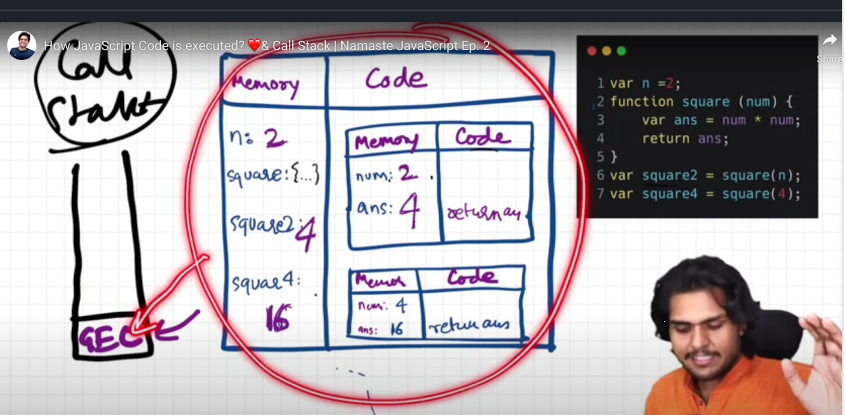 How JavaScript Code is executed? ❤️& Call Stack | Namaste JavaScript Ep. 2
Share
Call
Stack
GEC
Memory
Code
n: 2
square:{...}
square2: 4
squae4:
16
Memory
Code
num: 2
ans: 4
return an
Code
num: 4
ans: 16
return ans
1 var n =2;
2 function square (num) {
3 var ans = num * num;
4 return ans;
5 }
6 var square2 = square(n);
7 var square4 = square(4);